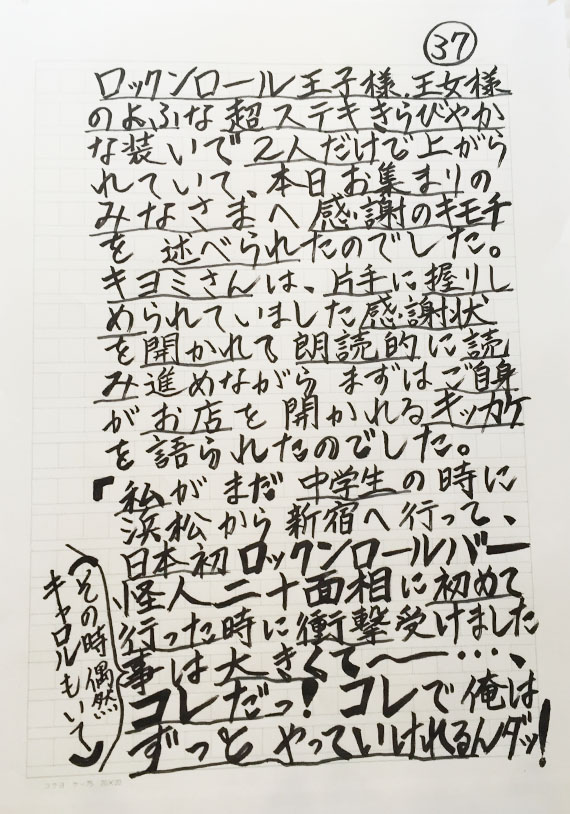 37
ロックンロール王子様、王女様
のよふな超ステキきらびやか
な装いで2人だけで上がら
れていて、本日お集まりの
みなさまへ感謝のキモチ
を述べられたのでした。
キヨミさんは、片手に握りし
められていました感謝状
を開かれて朗読的に読
み進めながらまずはご自身
がお店を開かれるキッカケ
を語られたのでした。
「私がまだ中学生の時に
浜松から新宿へ行って、
日本初ロックンロールバー
怪人二十面相に初めて
行った時に衝撃受けました
事は大きくて〜…、
コレだっ!コレで俺は
ずっとやっていけれるんダッ!
(その時偶然
キャロルもいて)